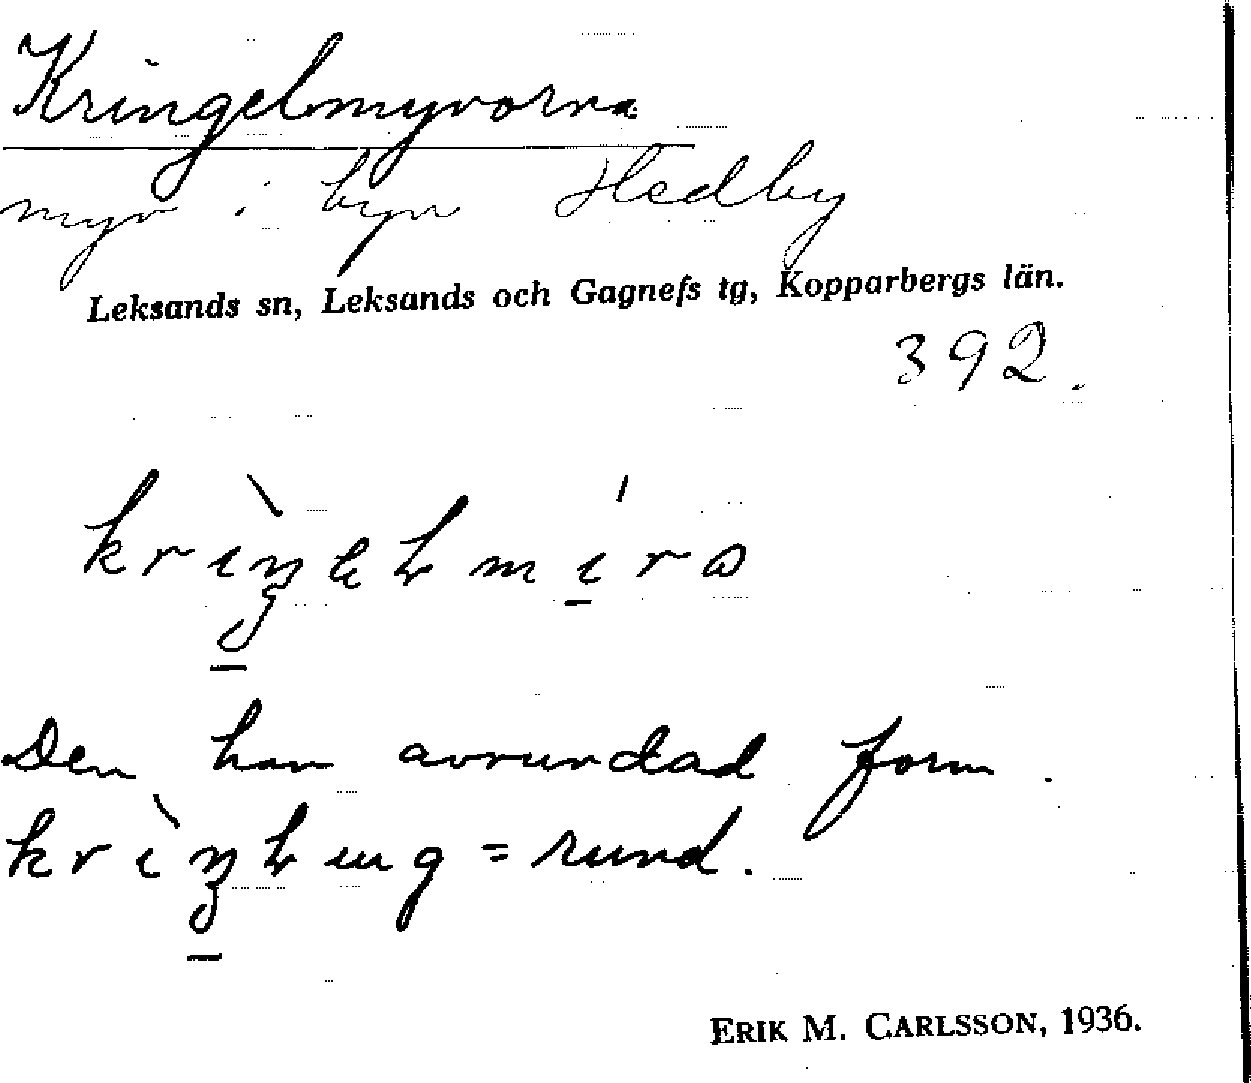 Kringelmyrorna
myr i byn Hedby
Leksands sn, Leksands och Gagnefs tg, Kopparbergs län.
392.
Den har avrundad form.
= rund.
ERIK M. CARLSSON, 1936.